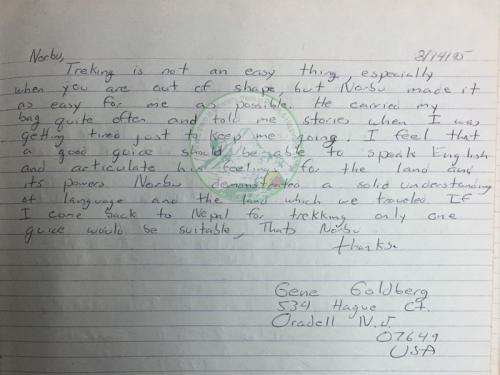 Norbu,
8/14/95
Treking is not an easy thing, especially
when you are out of shape, but Norbu made it
as easy for me as possible. He carried my
bag quite often and told me stories when I was
getting tired just to keep me going. I feel that
a good guide should be able to speak English
and articulate his feeling for the land and
its powers Norbu demonstrated a solid understanding
of language and the land which we traveled If
I come back to Nepal for trekking only one
guide would be suitable, Thats Norbu
thanks.
Gene Goldberg
534 Hague Ct.
Oradell N.J.
07649
USA